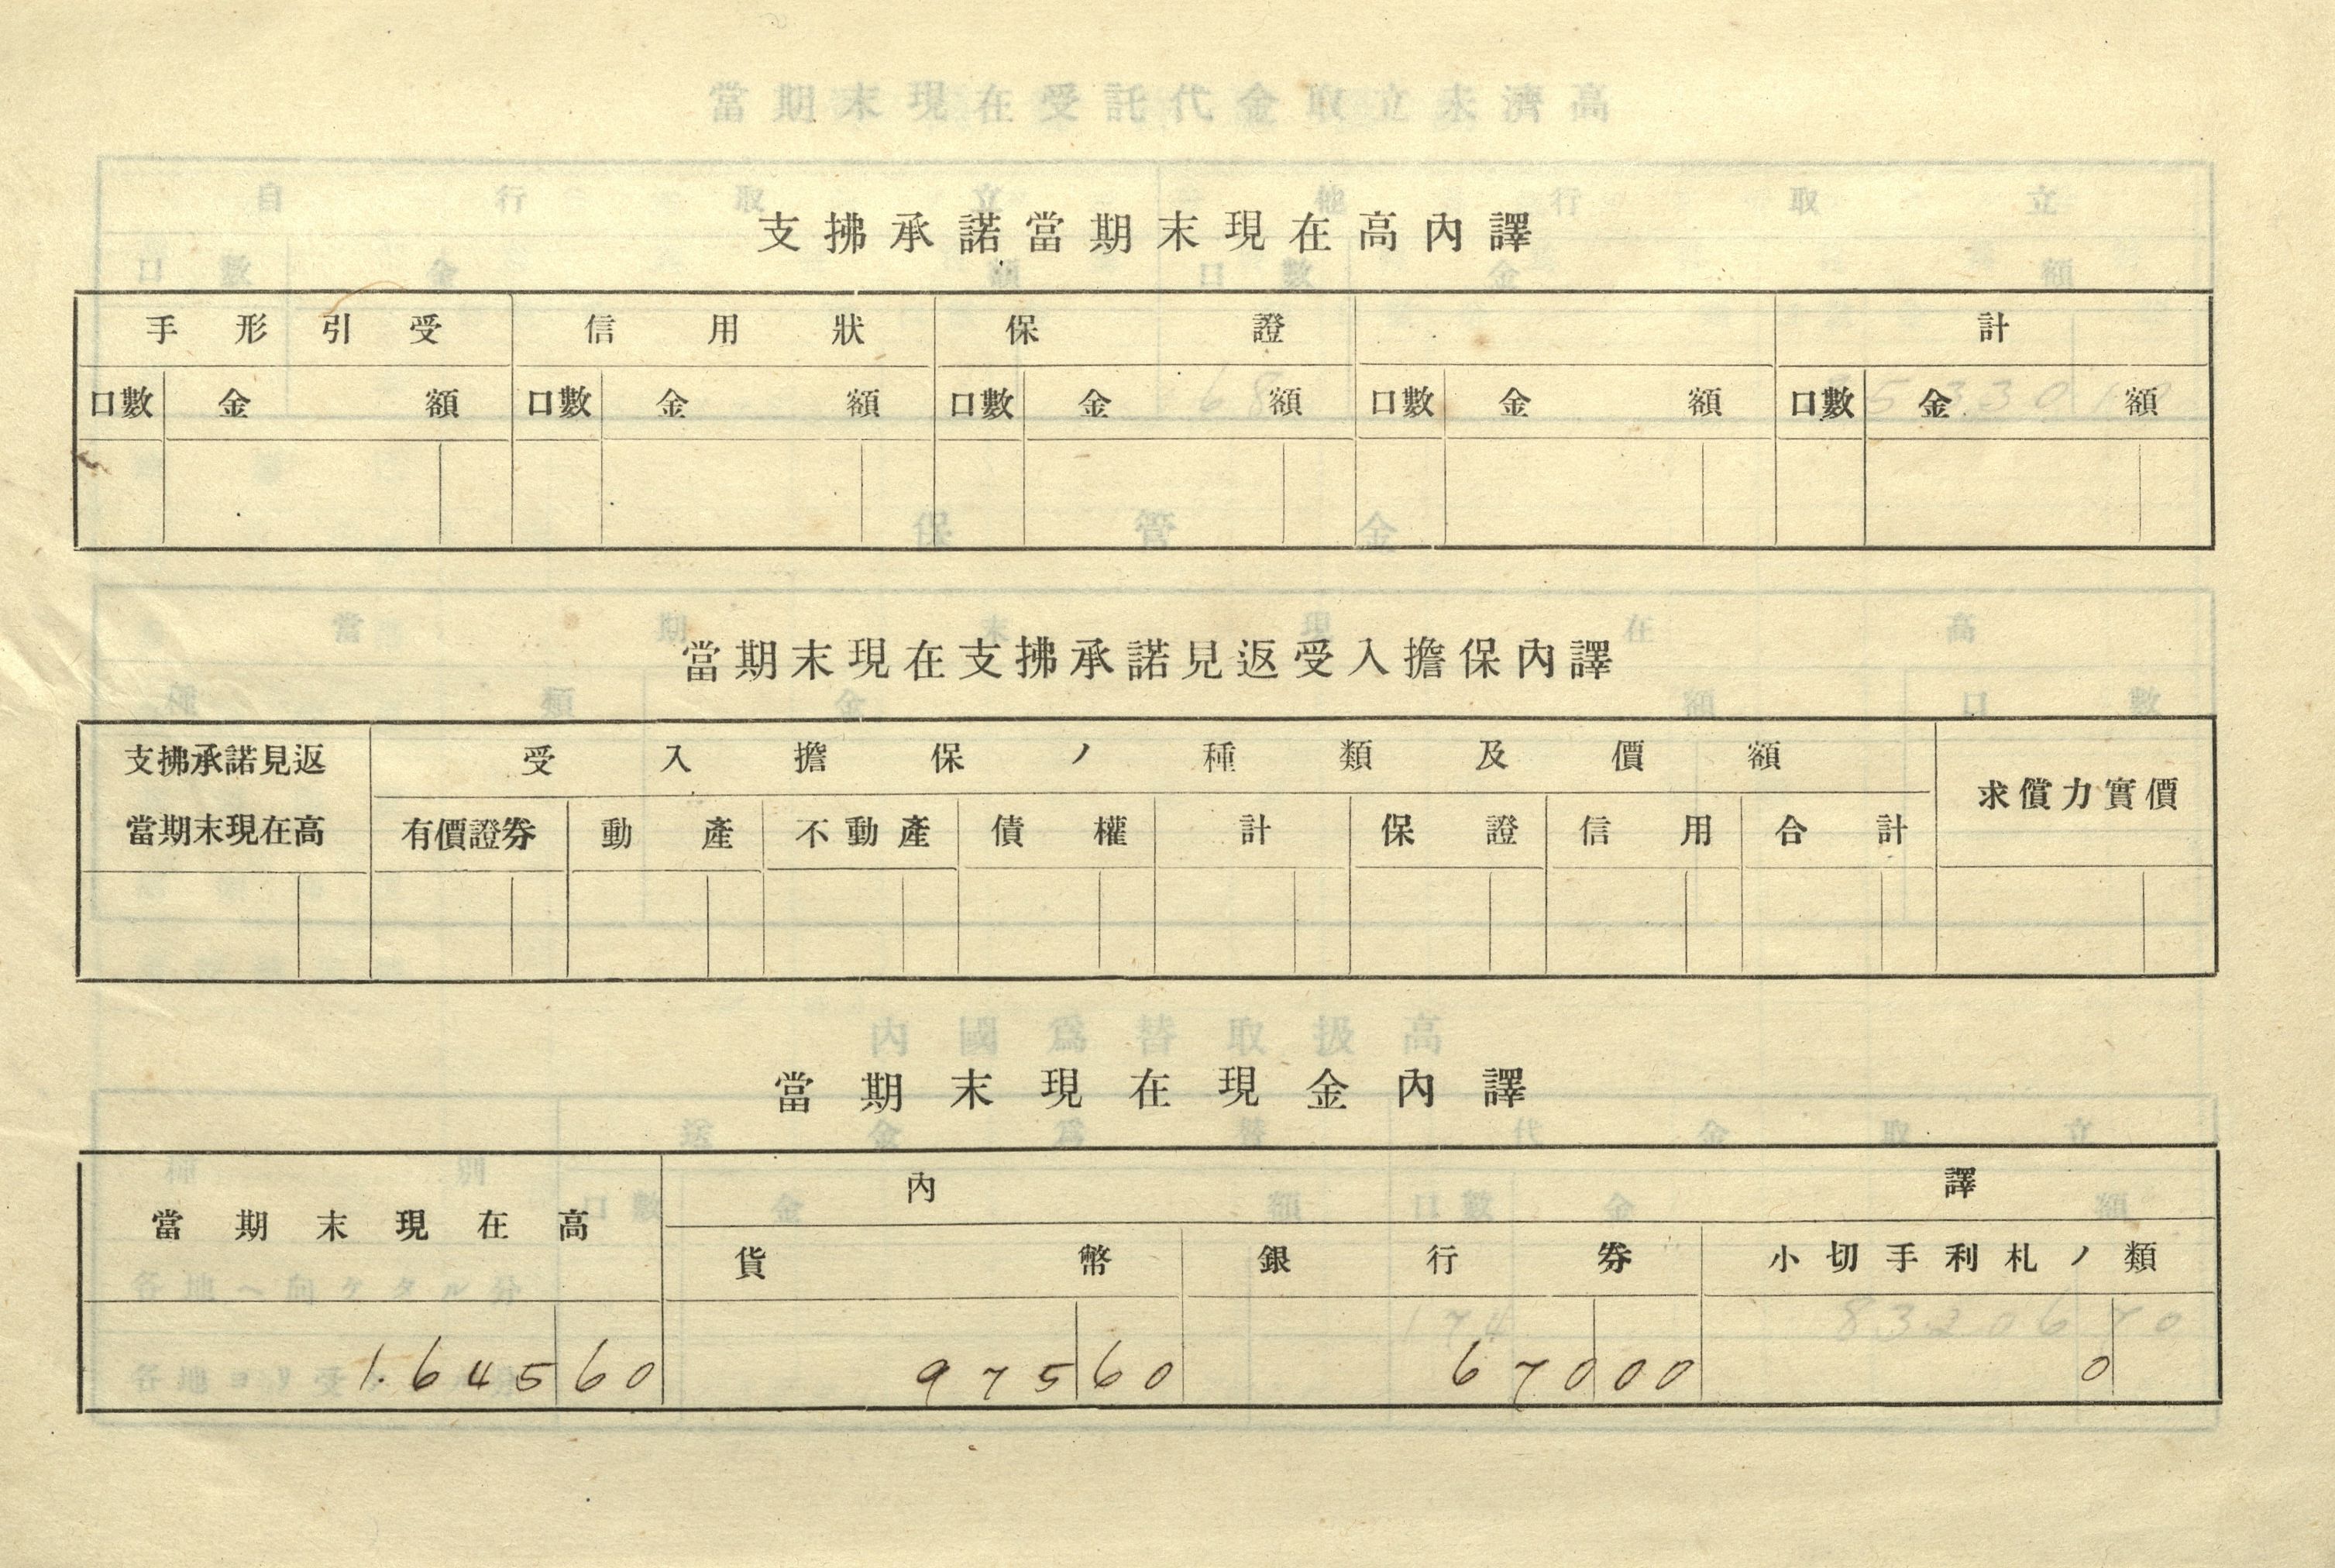 支拂承諾當期末現在高內譯
手形引受 信用狀 保證 計
口數 金額 口數 金額 口數 金額 口數 金額 口數 金額
當期末現在支拂承諾見返受入擔保內譯
支拂承諾見返 受入擔保ノ種類及價額
求償力實價
當期末現在高 有價證券 動產 不動產 債權 計 保證 信用 合計
當期末現在現金內譯
內譯
當期末現在高
貨幣 銀行券 小切手利札ノ類
1.645 60 975 60 670 00 0